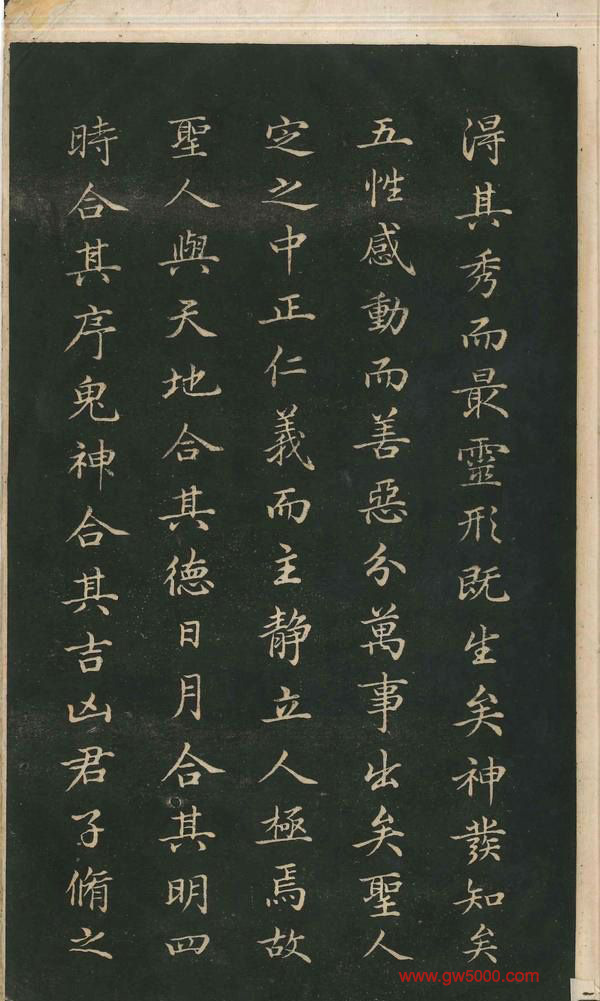 淂其秀而最靈形既生矣神發知矣
五性感動而善惡分萬事出矣聖人
定之中正仁義而主静立人極焉故
聖人與天地合其德日月合其明四
時合其序鬼神合其吉凶君子脩之
www.gw5000.com